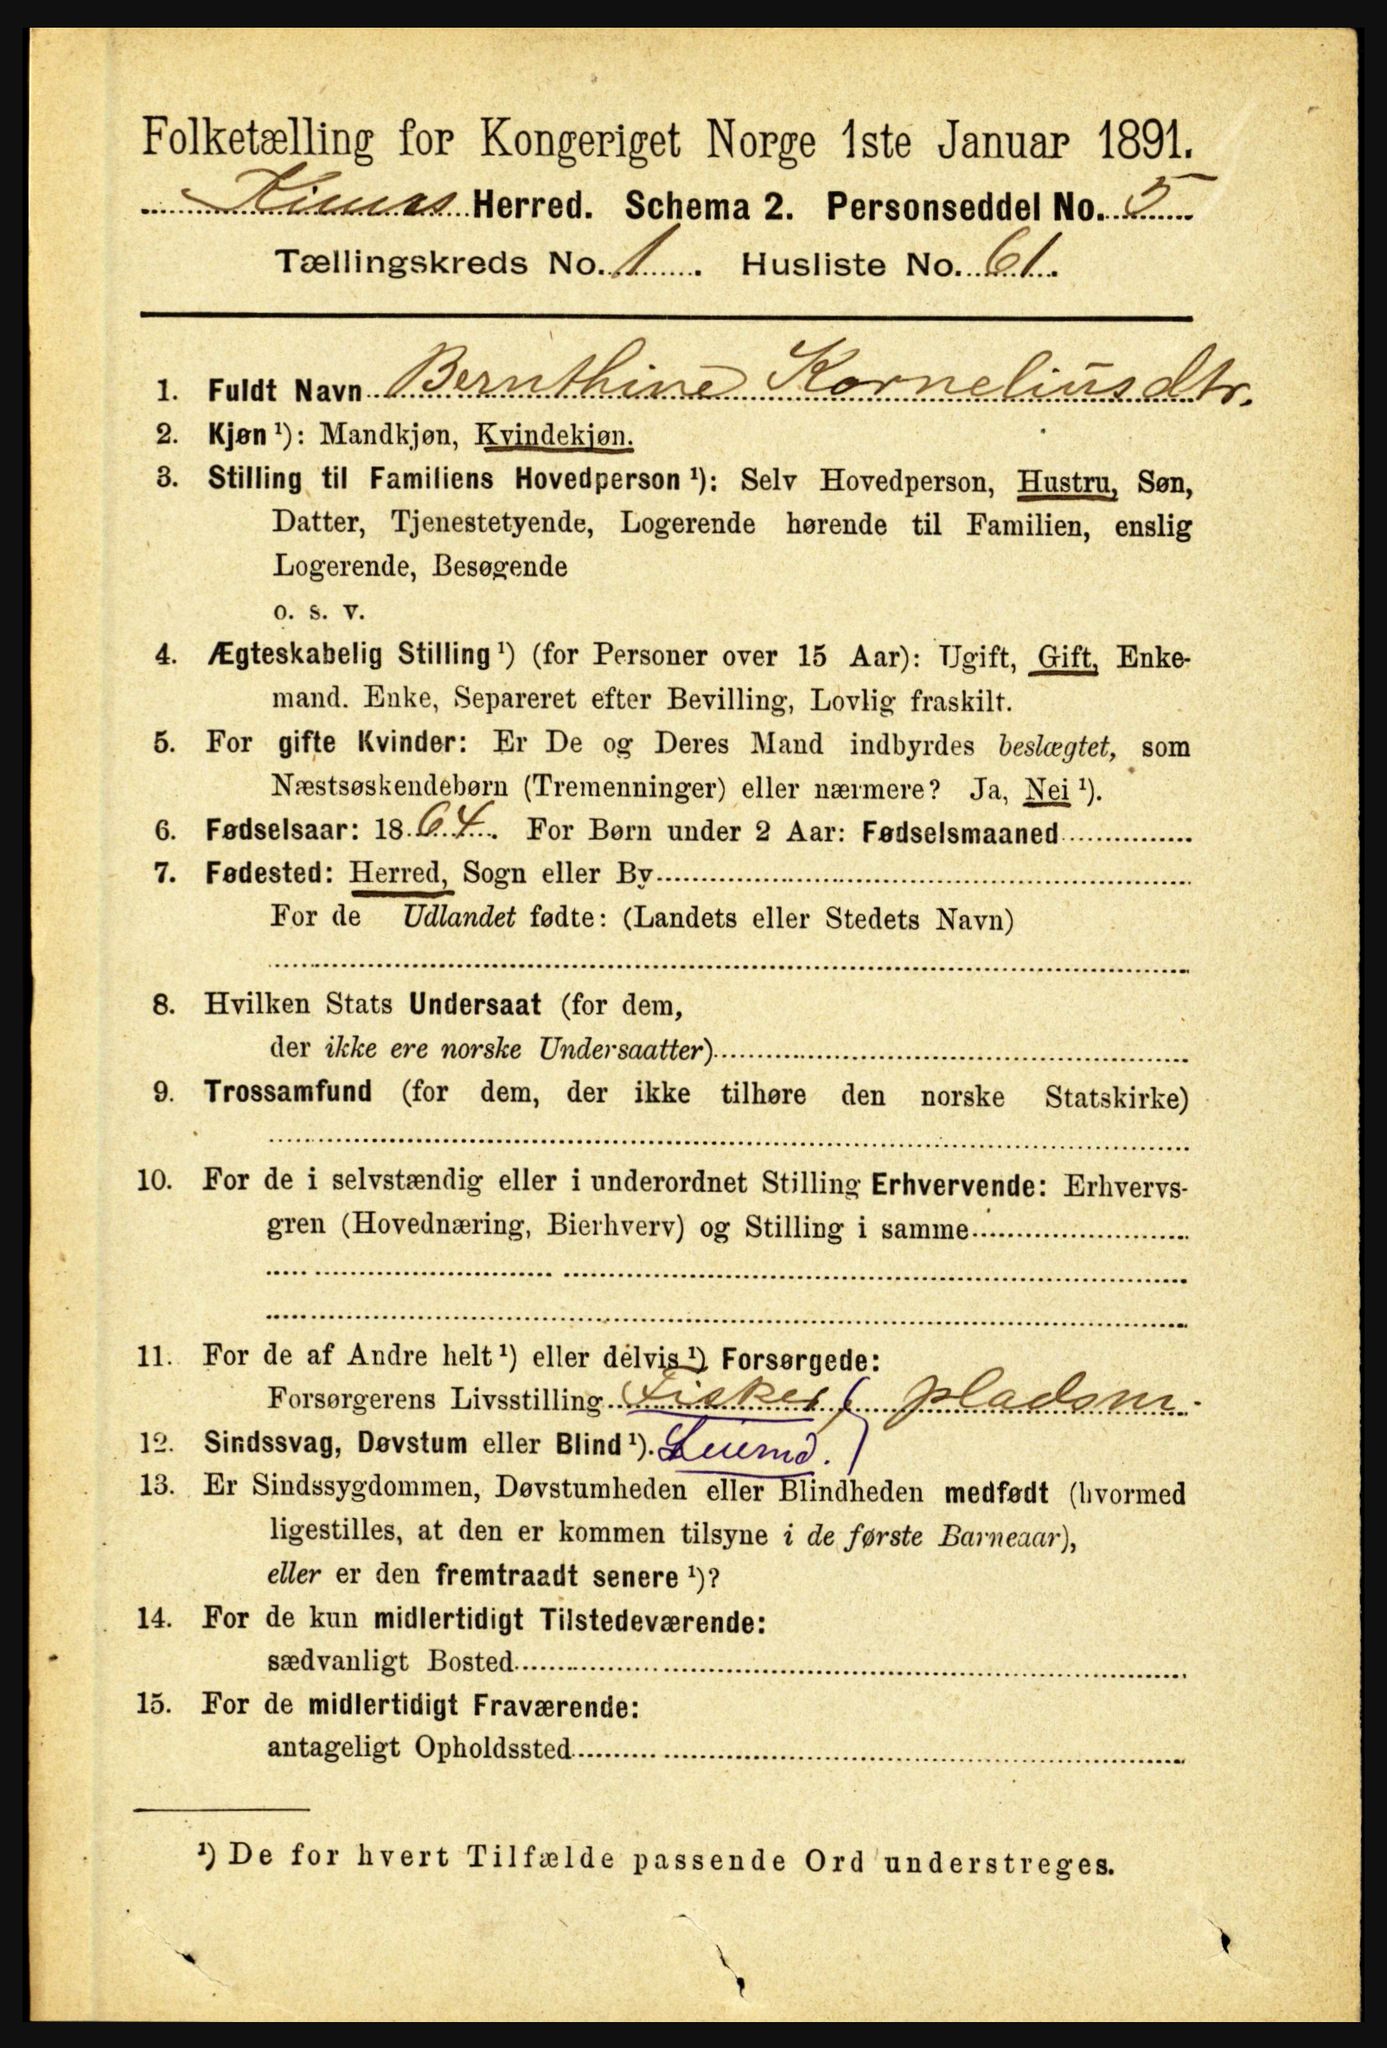 Folketælling for Kongeriget Norge 1ste Januar 1891.
Kinns Herred. Schema 2. Personseddel No. 5
Tællingskreds No. 1. Husliste No. 61.
1. Fuldt Navn Bernthine Korneliusdtr.
2. Kjøn ¹): Mandkjøn, Kvindekjøn.
3. Stilling til Familiens Hovedperson ¹): Selv Hovedperson, Hustru, Søn,
Datter, Tjenestetyende, Logerende hørende til Familien, enslig
Logerende, Besøgende
o. s. v.
4. Ægteskabelig Stilling ¹) (for Personer over 15 Aar): Ugift, Gift, Enke-
mand. Enke, Separeret efter Bevilling, Lovlig fraskilt.
5. For gifte Kvinder: Er De og Deres Mand indbyrdes beslægtet, som
Næstsøskendebørn (Tremenninger) eller nærmere? Ja, Nei ¹).
6. Fødselsaar: 1864. For Børn under 2 Aar: Fødselsmaaned
7. Fødested: Herred, Sogn eller By
For de Udlandet fødte: (Landets eller Stedets Navn)
8. Hvilken Stats Undersaat (for dem,
der ikke ere norske Undersaatter)
9. Trossamfund (for dem, der ikke tilhøre den norske Statskirke)
10. For de i selvstændig eller i underordnet Stilling Erhvervende: Erhvervs-
gren (Hovednæring, Bierhverv) og Stilling i samme
11. For de af Andre helt ¹) eller delvis ¹) Forsørgede:
Forsørgerens Livsstilling Fisker pladsm.
12. Sindssvag, Døvstum eller Blind ¹).
13. Er Sindssygdommen, Døvstumheden eller Blindheden medfødt (hvormed
ligestilles, at den er kommen tilsyne i de første Barneaar),
eller er den fremtraadt senere ¹)?
14. For de kun midlertidigt Tilstedeværende:
sædvanligt Bosted
15. For de midlertidigt Fraværende:
antageligt Opholdssted
¹) De for hvert Tilfælde passende Ord understreges.